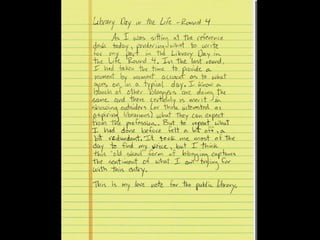 Library Day in the Life - Round 4
As I was sitting at the reference
desk today, pondering what to write
for my part in the Library Day in
the Life Round 4. In the last round,
I had taken the time to provide a
moment by moment account as to what
goes on in a typical day. I know a
bunch of other bloggers are doing the
same and there certainly is merit in
showing outsiders (or those interested as
aspiring librarians) what they can expect
from the profession. But to repeat what
I had done before felt a bit off, a
bit redundant. It took me most of the
day to find my voice, but I think
this 'old school' form of blogging captures
the sentiment of what I am trying for
with this entry.
This is my love note for the public library.